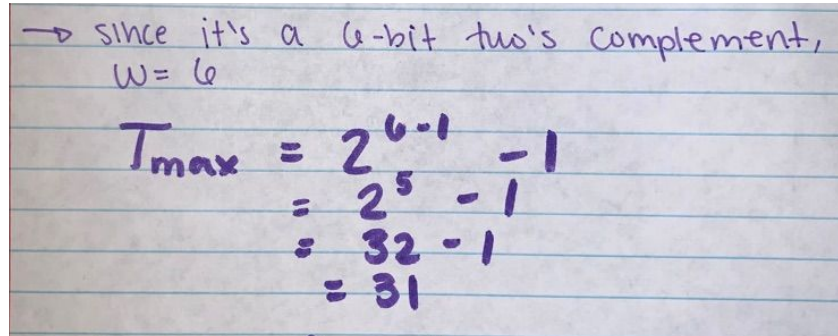 → since it's a 6-bit two's complement,
w = 6
Tmax = 2^(6-1) - 1
= 2^5 - 1
= 32 - 1
= 31